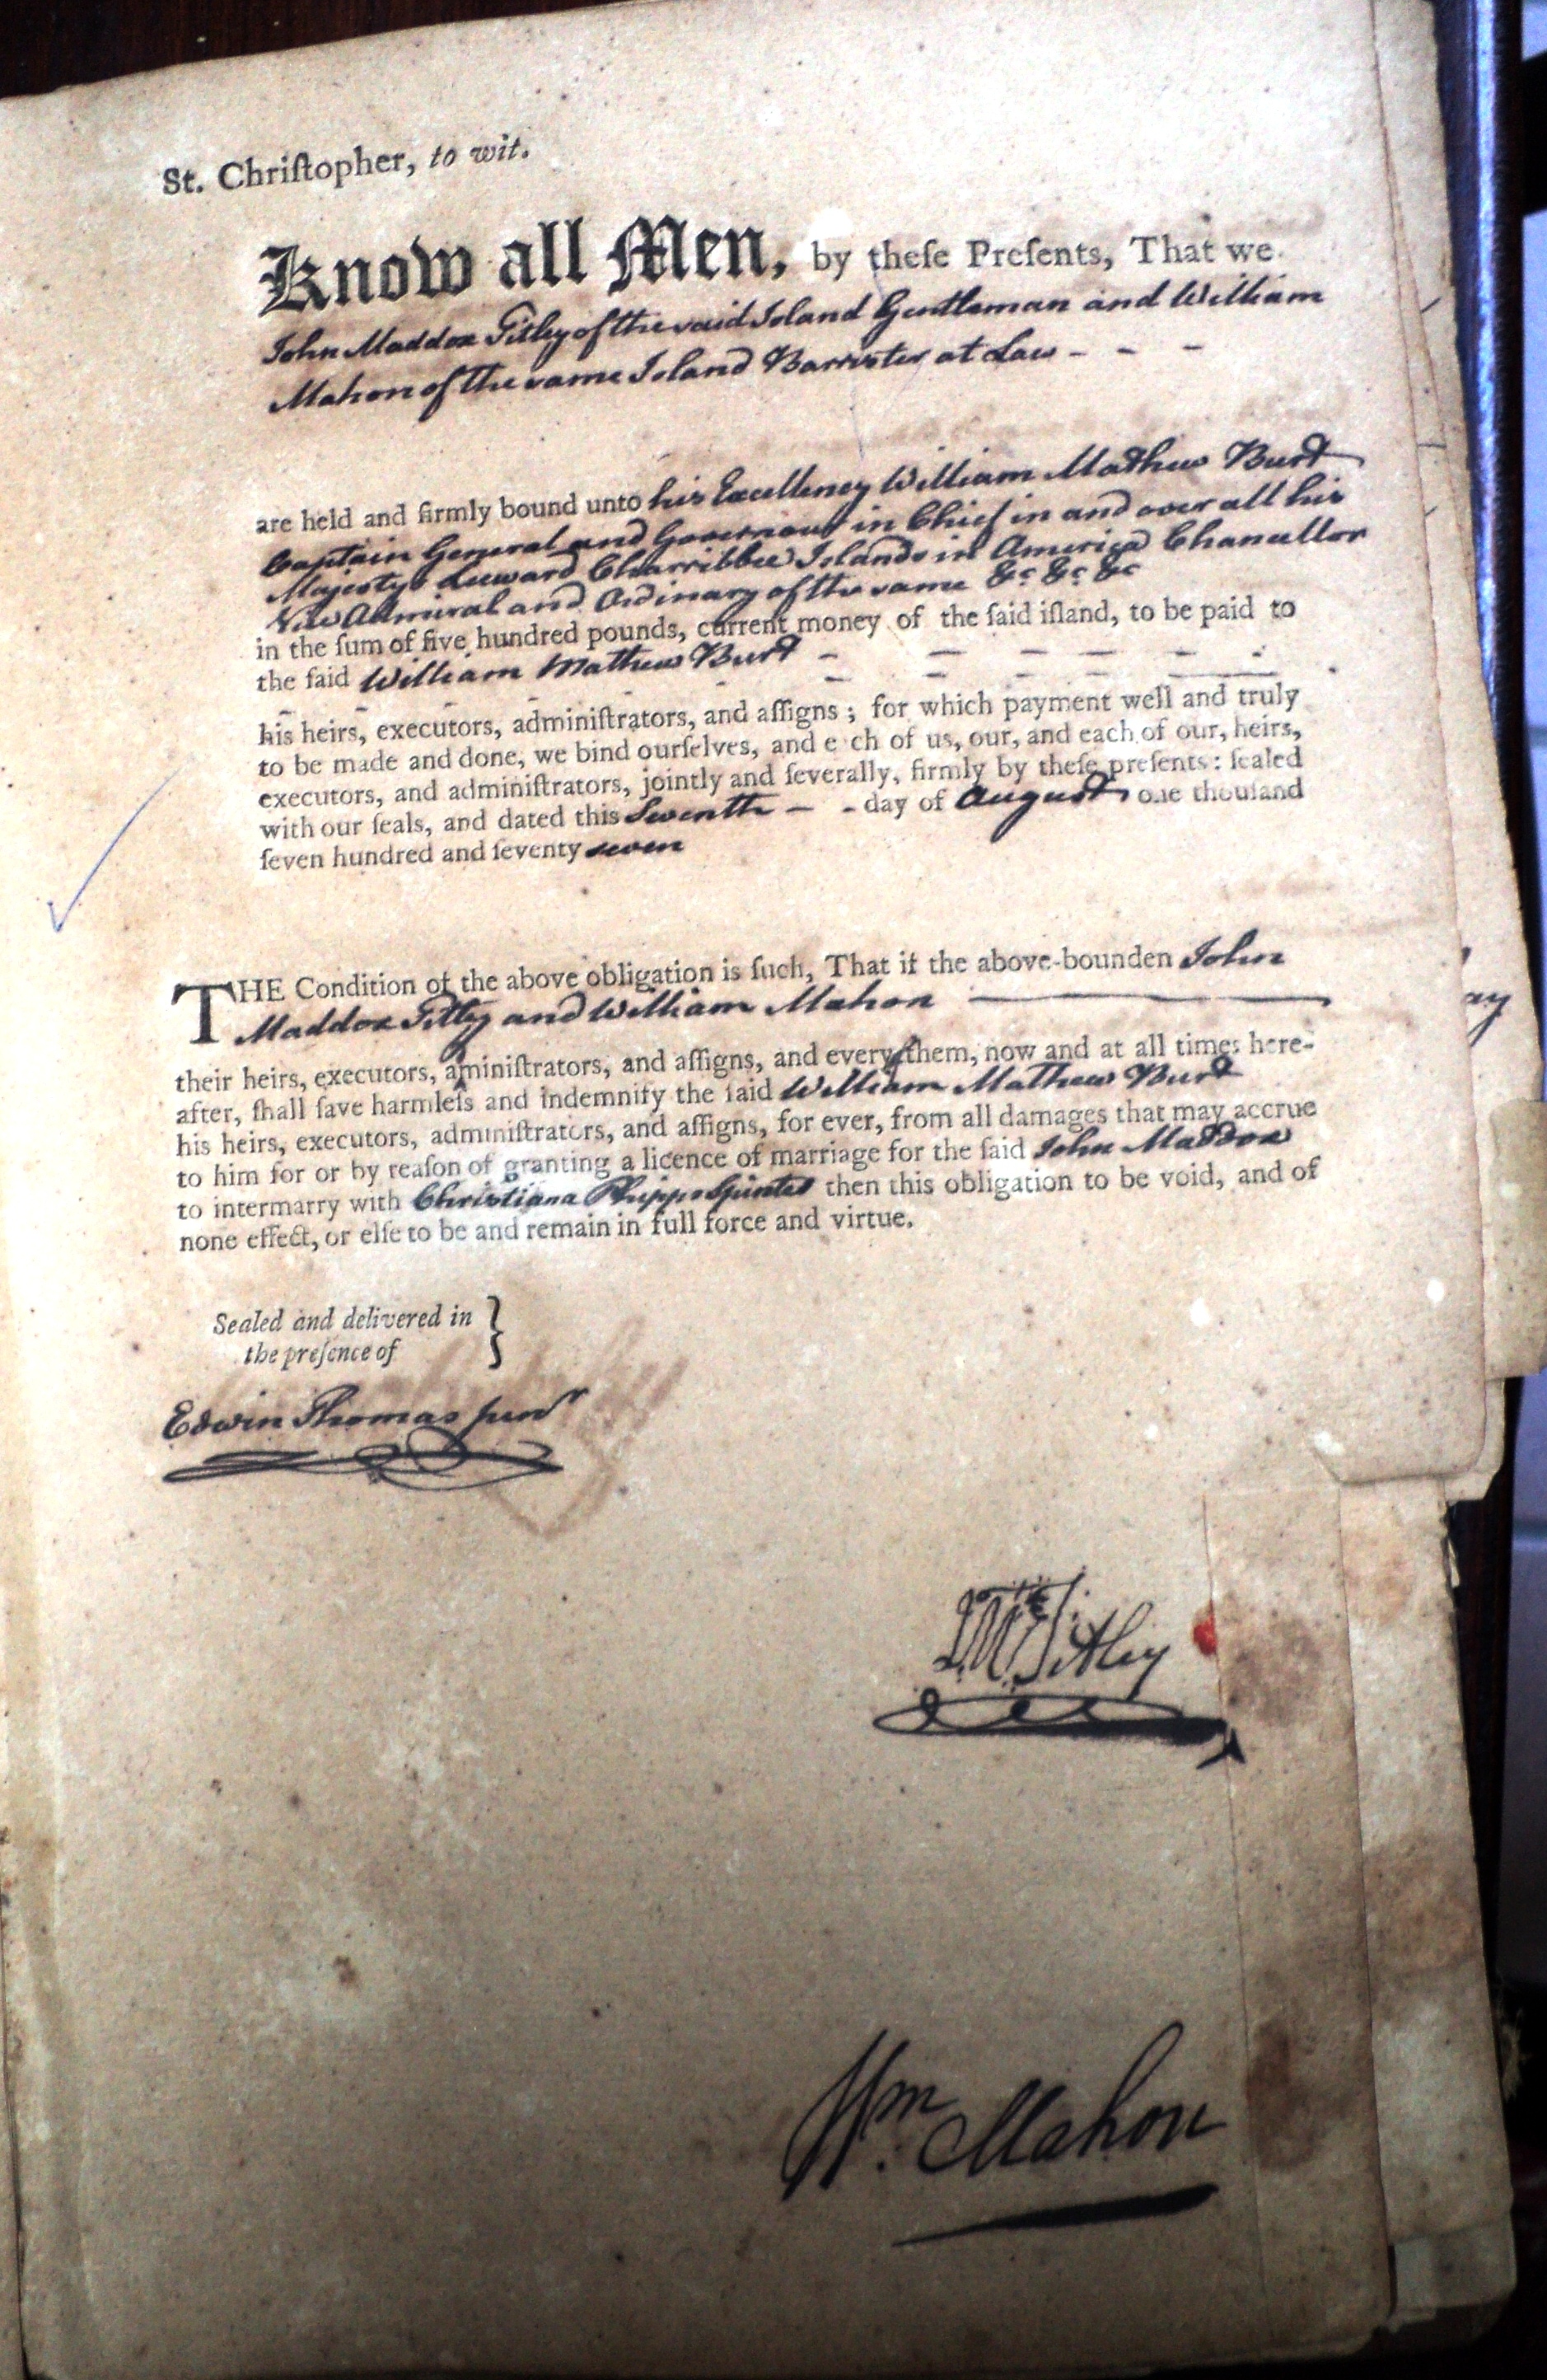 St. Chriſtopher, to wit.
Know all Men, by theſe Preſents, That we
John Maddox Titley of the said Island Gentleman and William
Mahon of the same Island Barrister at Law - - -
are held and firmly bound unto his Excellency William Mathew Burt
Captain General and Governour in Chief in and over all his
Majestys Leeward Charribbee Islands in America Chancellor
Vice Admiral and Ordinary of the same &c &c &c
in the ſum of five hundred pounds, current money of the ſaid iſland, to be paid to
the ſaid William Mathew Burt - - - - - -
his heirs, executors, adminiſtrators, and aſſigns; for which payment well and truly
to be made and done, we bind ourſelves, and e ch of us, our, and each of our, heirs,
executors, and adminiſtrators, jointly and ſeverally, firmly by theſe preſents: ſealed
with our ſeals, and dated this Seventh - - day of August one thouſand
ſeven hundred and ſeventy seven
THE Condition of the above obligation is ſuch, That if the above-bounden John
Maddox Titley and William Mahon
their heirs, executors, aminiſtrators, and aſſigns, and every of them, now and at all times here-
after, ſhall ſave harmleſs and indemnify the ſaid William Mathew Burt
his heirs, executors, adminiſtrators, and aſſigns, for ever, from all damages that may accrue
to him for or by reaſon of granting a licence of marriage for the ſaid John Maddox
to intermarry with Christiana Phipps Spinster then this obligation to be void, and of
none effect, or elſe to be and remain in full force and virtue.
Sealed and delivered in }
the preſence of
Edwin Thomas junr
J Mx Titley
Wm. Mahon